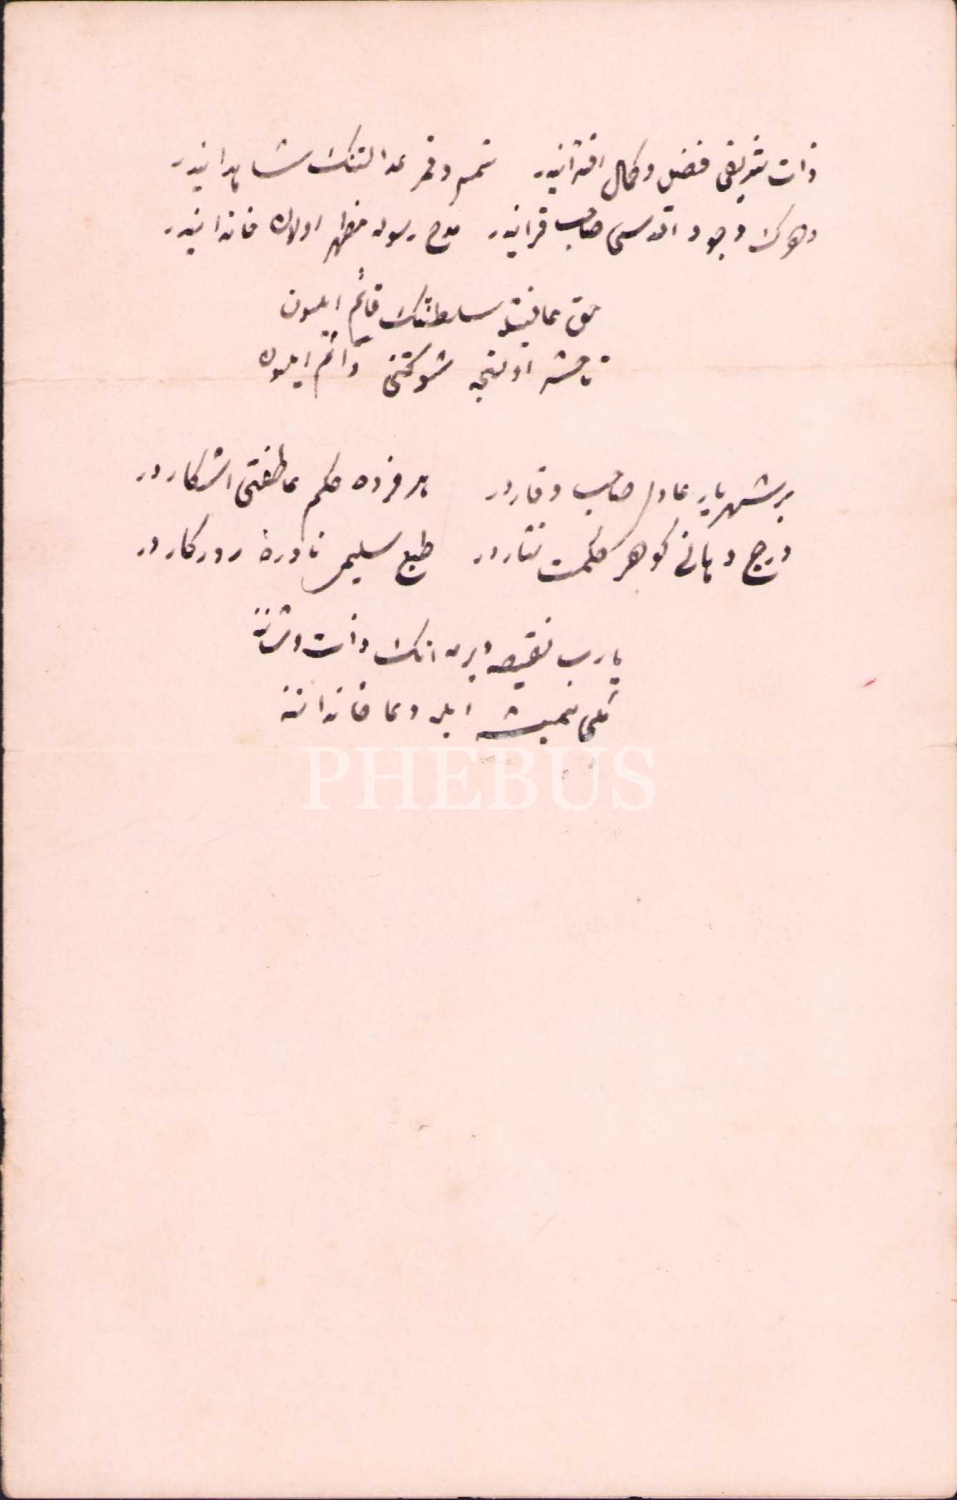 ذات شریفی فضل و کمال اقترانیدر شمس و قمر عدالتنك شاهدانیدر
دهرك وجود اقدسی صاحب قرانیدر مدح رسوله مظهر اولان خاندانیدر
حق عافیتله سلطنتك قائم ایلسون
تا حشر اولنجه شوكتنی دائم ایلسون
بر شهریار عادل صاحب وقاردر هر فرده حكم عاطفتی اشكاردر
درج دهانی كوهر حكمت نثاردر طبع سلیمی نادرهٔ روزكاردر
یارب نقیصه ویرمه انك ذات و شاننه
همیشه ایله دعا خانداننه
PHEBUS